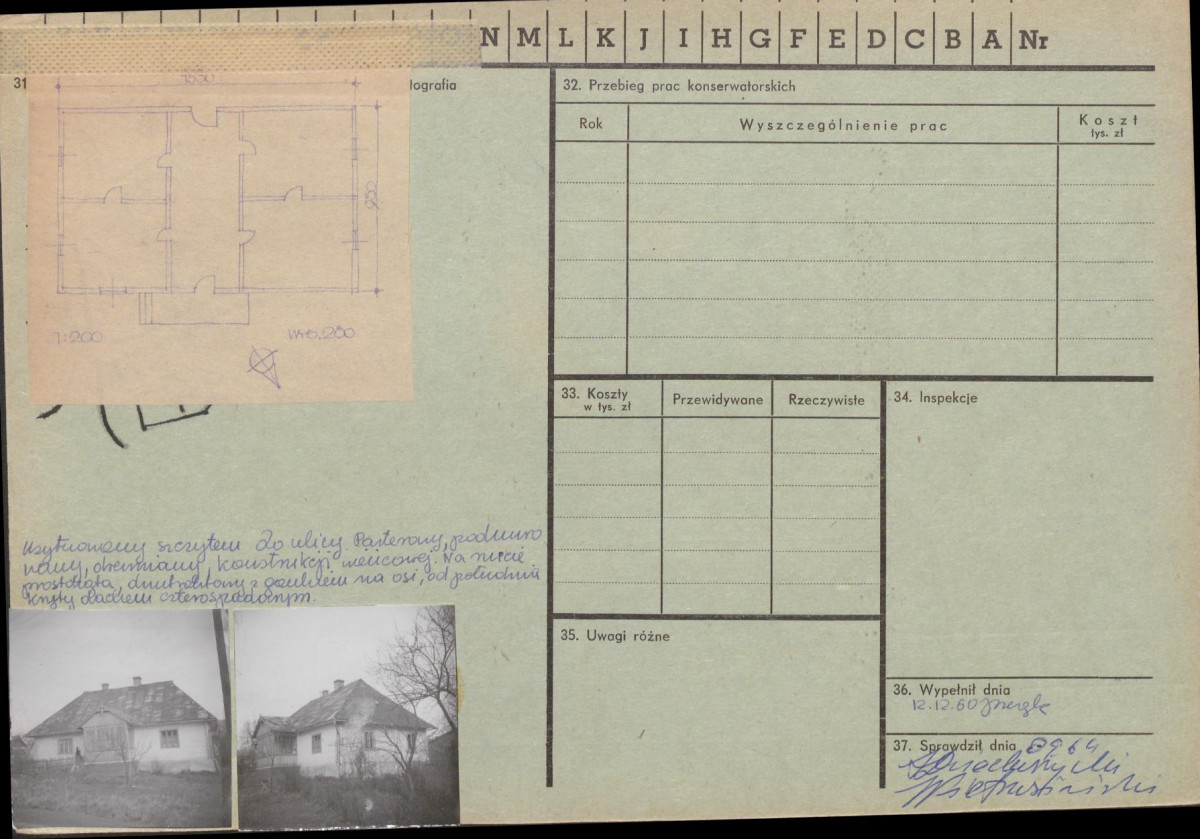 N M L K J I H G F E D C B A Nr
31
tografia
1:200
32. Przebieg prac konserwatorskich
Rok
Wyszczególnienie prac
Koszt
tys. zł
33. Koszty
w tys. zł
Przewidywane
Rzeczywiste
34. Inspekcje
Usytuowany szczytem do ulicy. Parterowy, podmuro
wany, drewniany, konstrukcji wieńcowej. Na rzucie
prostokąta, dwutraktowy z gankiem na osi, od południa
kryty dachem czterospadowym.
35. Uwagi różne
36. Wypełnił dnia
12.12.60
37. Sprawdził dnia